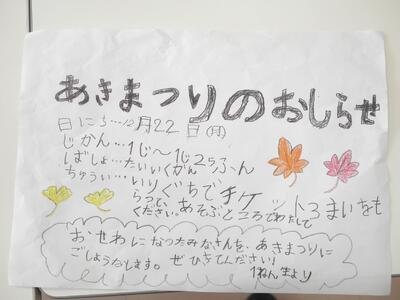 あきまつりのおしらせ
日にち…12月22日(月)
じかん…1じ〜1じ25ふん
ばしょ…たいいくかん
ちゅうい…いりぐちで手ケット3まいをも
らってください。あそぶところでわたして
ください。
おせわになったみなさんを、あきまつりに
ごしょうたいします。ぜひきてください!
1ねんせいより